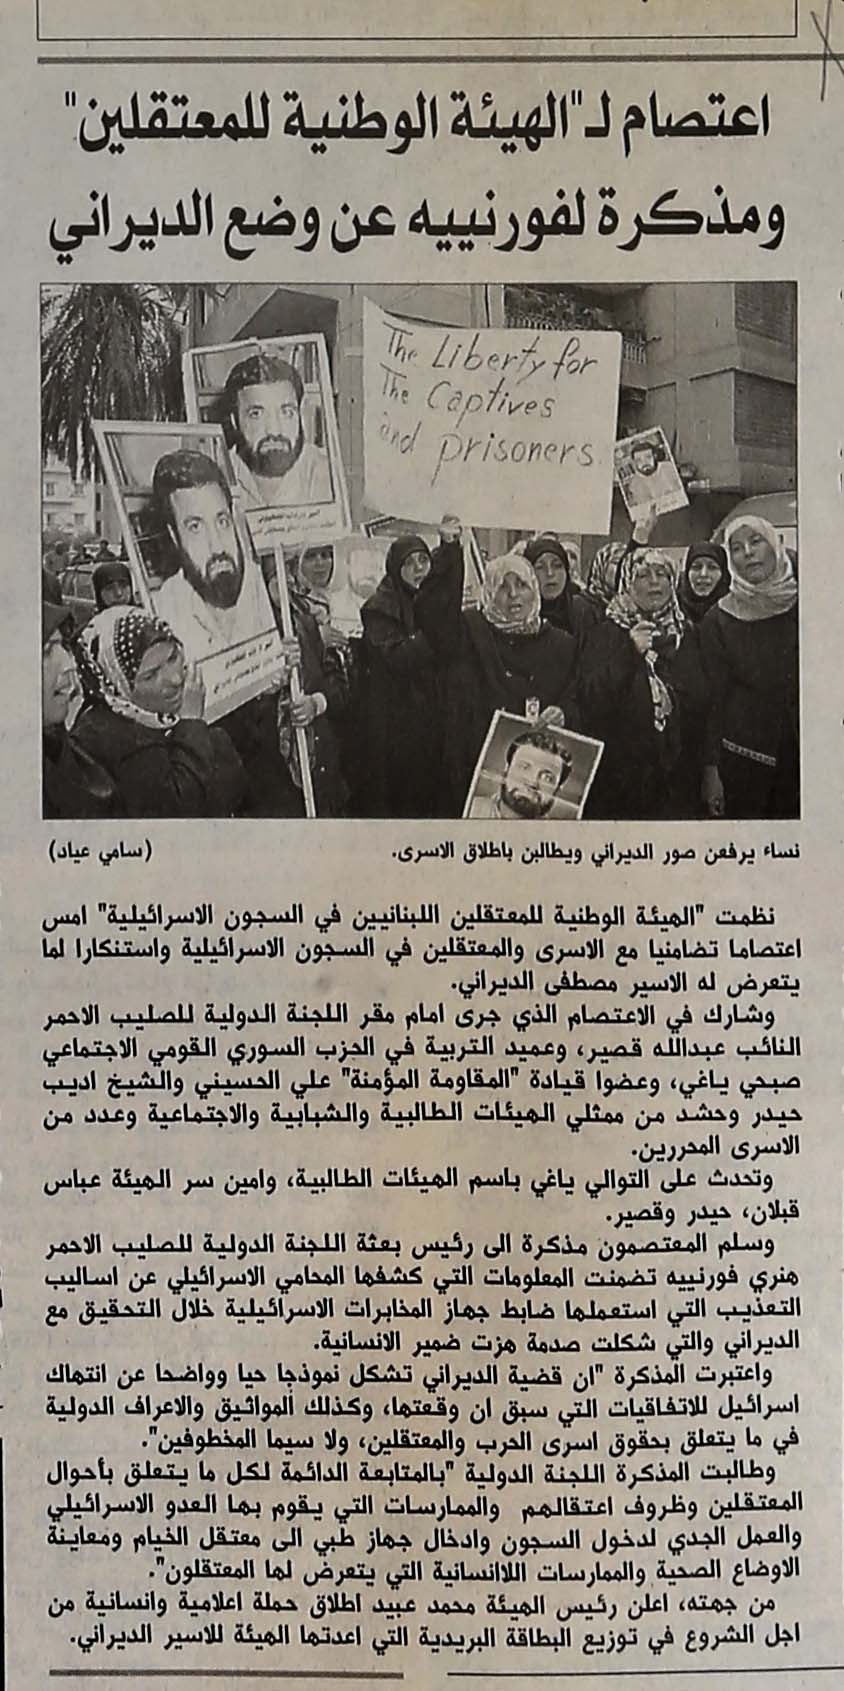 اعتصام لـ"الهيئة الوطنية للمعتقلين"
ومذكرة لفورنييه عن وضع الديراني
The Liberty for
The Captives
and prisoners
نساء يرفعن صور الديراني ويطالبن باطلاق الاسرى. (سامي عياد)
نظمت "الهيئة الوطنية للمعتقلين اللبنانيين في السجون الاسرائيلية" امس
اعتصاما تضامنيا مع الاسرى والمعتقلين في السجون الاسرائيلية واستنكارا لما
يتعرض له الاسير مصطفى الديراني.
وشارك في الاعتصام الذي جرى امام مقر اللجنة الدولية للصليب الاحمر
النائب عبدالله قصير، وعميد التربية في الحزب السوري القومي الاجتماعي
صبحي ياغي، وعضوا قيادة "المقاومة المؤمنة" علي الحسيني والشيخ اديب
حيدر وحشد من ممثلي الهيئات الطالبية والشبابية والاجتماعية وعدد من
الاسرى المحررين.
وتحدث على التوالي ياغي باسم الهيئات الطالبية، وامين سر الهيئة عباس
قبلان، حيدر وقصير.
وسلم المعتصمون مذكرة الى رئيس بعثة اللجنة الدولية للصليب الاحمر
هنري فورنييه تضمنت المعلومات التي كشفها المحامي الاسرائيلي عن اساليب
التعذيب التي استعملها ضابط جهاز المخابرات الاسرائيلية خلال التحقيق مع
الديراني والتي شكلت صدمة هزت ضمير الانسانية.
واعتبرت المذكرة "ان قضية الديراني تشكل نموذجا حيا وواضحا عن انتهاك
اسرائيل للاتفاقيات التي سبق ان وقعتها، وكذلك المواثيق والاعراف الدولية
في ما يتعلق بحقوق اسرى الحرب والمعتقلين، ولا سيما المخطوفين".
وطالبت المذكرة اللجنة الدولية "بالمتابعة الدائمة لكل ما يتعلق بأحوال
المعتقلين وظروف اعتقالهم والممارسات التي يقوم بها العدو الاسرائيلي
والعمل الجدي لدخول السجون وادخال جهاز طبي الى معتقل الخيام ومعاينة
الاوضاع الصحية والممارسات اللاانسانية التي يتعرض لها المعتقلون".
من جهته، اعلن رئيس الهيئة محمد عبيد اطلاق حملة اعلامية وانسانية من
اجل الشروع في توزيع البطاقة البريدية التي اعدتها الهيئة للاسير الديراني.